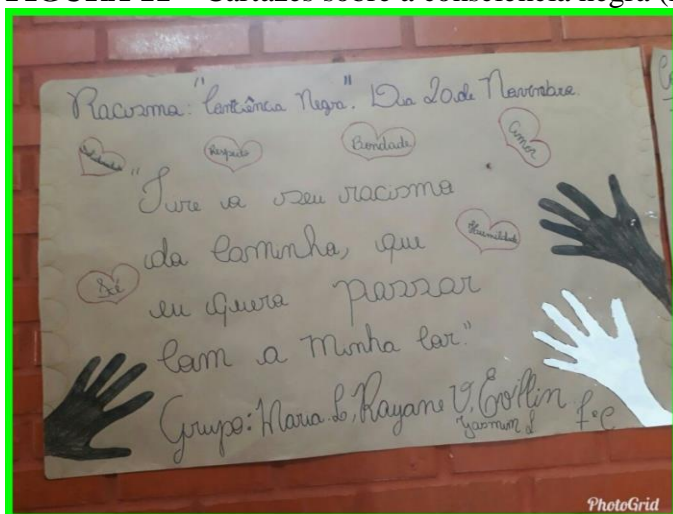 Cartazes sobre a consciência negra
Racismo: "Consciência Negra". Dia 20 de Novembro.
Respeito
Bondade
Amor
"Tire o seu racismo
do caminho, que
Humildade
eu quero passar
com a minha cor."
Grupo: Maria. L, Rayane V, Evillin
Yasmim L
PhotoGrid